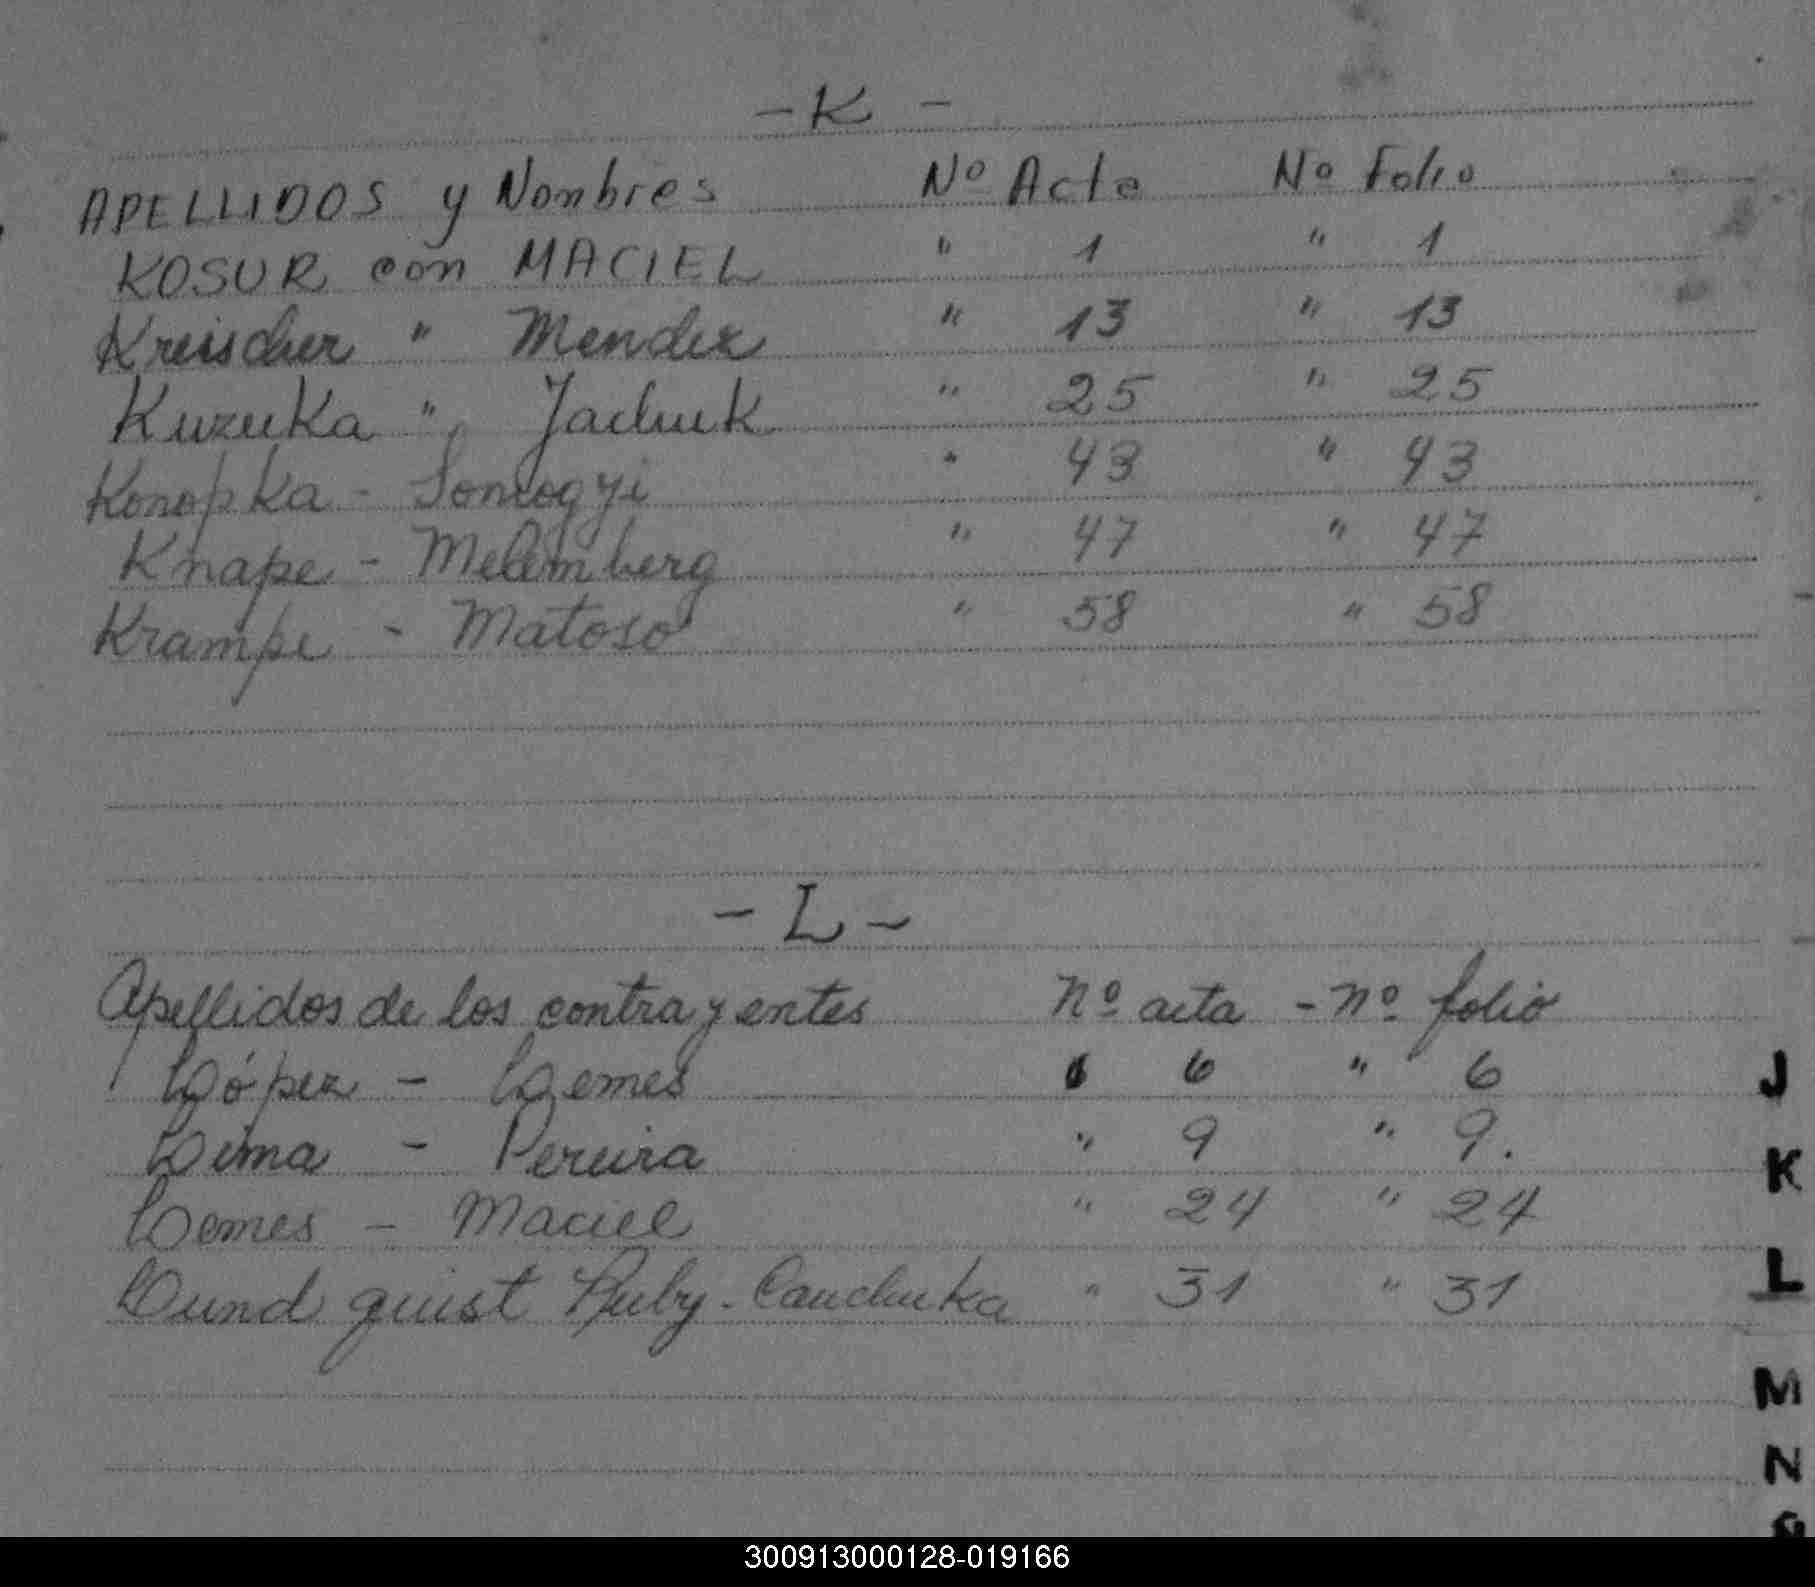 - K -
APELLIDOS y Nombres Nº Acta Nº Folio
KOSUR con MACIEL " 1 " 1
Kreischer " Mendez " 13 " 13
Kuzuka " Jachuk " 25 " 25
Konopka - Somogyi " 43 " 43
Knape - Melemberg " 47 " 47
Krampe - Matoso " 58 " 58
- L -
Apellidos de los contrayentes nº acta - nº folio
López - Lemes " 6 " 6
Lima - Pereira " 9 " 9.
Lemes - Maciel " 24 " 24
Lund quist Ruby - Cauchuka " 31 " 31
J
K
L
M
N
300913000128-019166